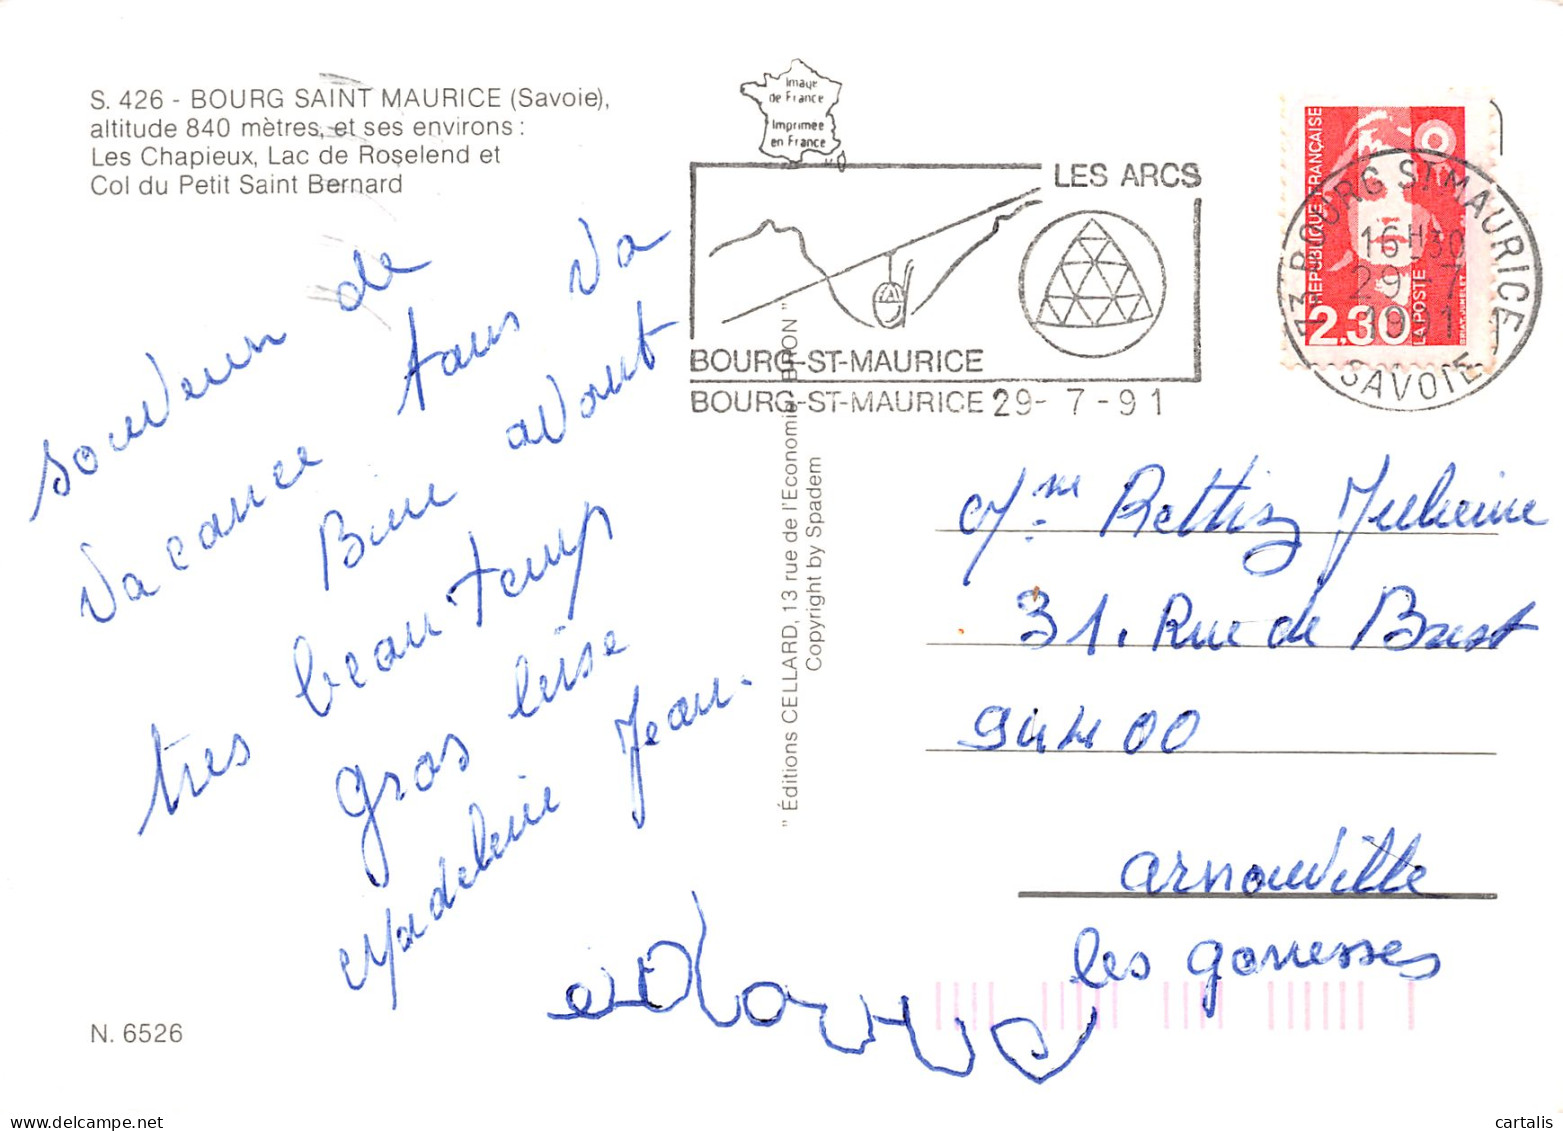 S. 426 - BOURG SAINT MAURICE (Savoie),
altitude 840 mètres, et ses environs :
Les Chapieux, Lac de Roselend et
Col du Petit Saint Bernard
Image
de France
Imprimée
en France
LES ARCS
BOURG-ST-MAURICE
BOURG-ST-MAURICE 29-7-91
RÉPUBLIQUE FRANÇAISE
2,30
LA POSTE
73 BOURG ST MAURICE
16H30
29-7
1991
SAVOIE
souvenir de
vacance tous va
Bien avont
tres beau temp
gros bise
Madeleine Jean.
"Éditions CELLARD, 13 rue de l'Economie BRON"
Copyright by Spadem
Mme Rettig
31. Rue de Brest
94400
arnouville
les gonesses
N. 6526
cartalis